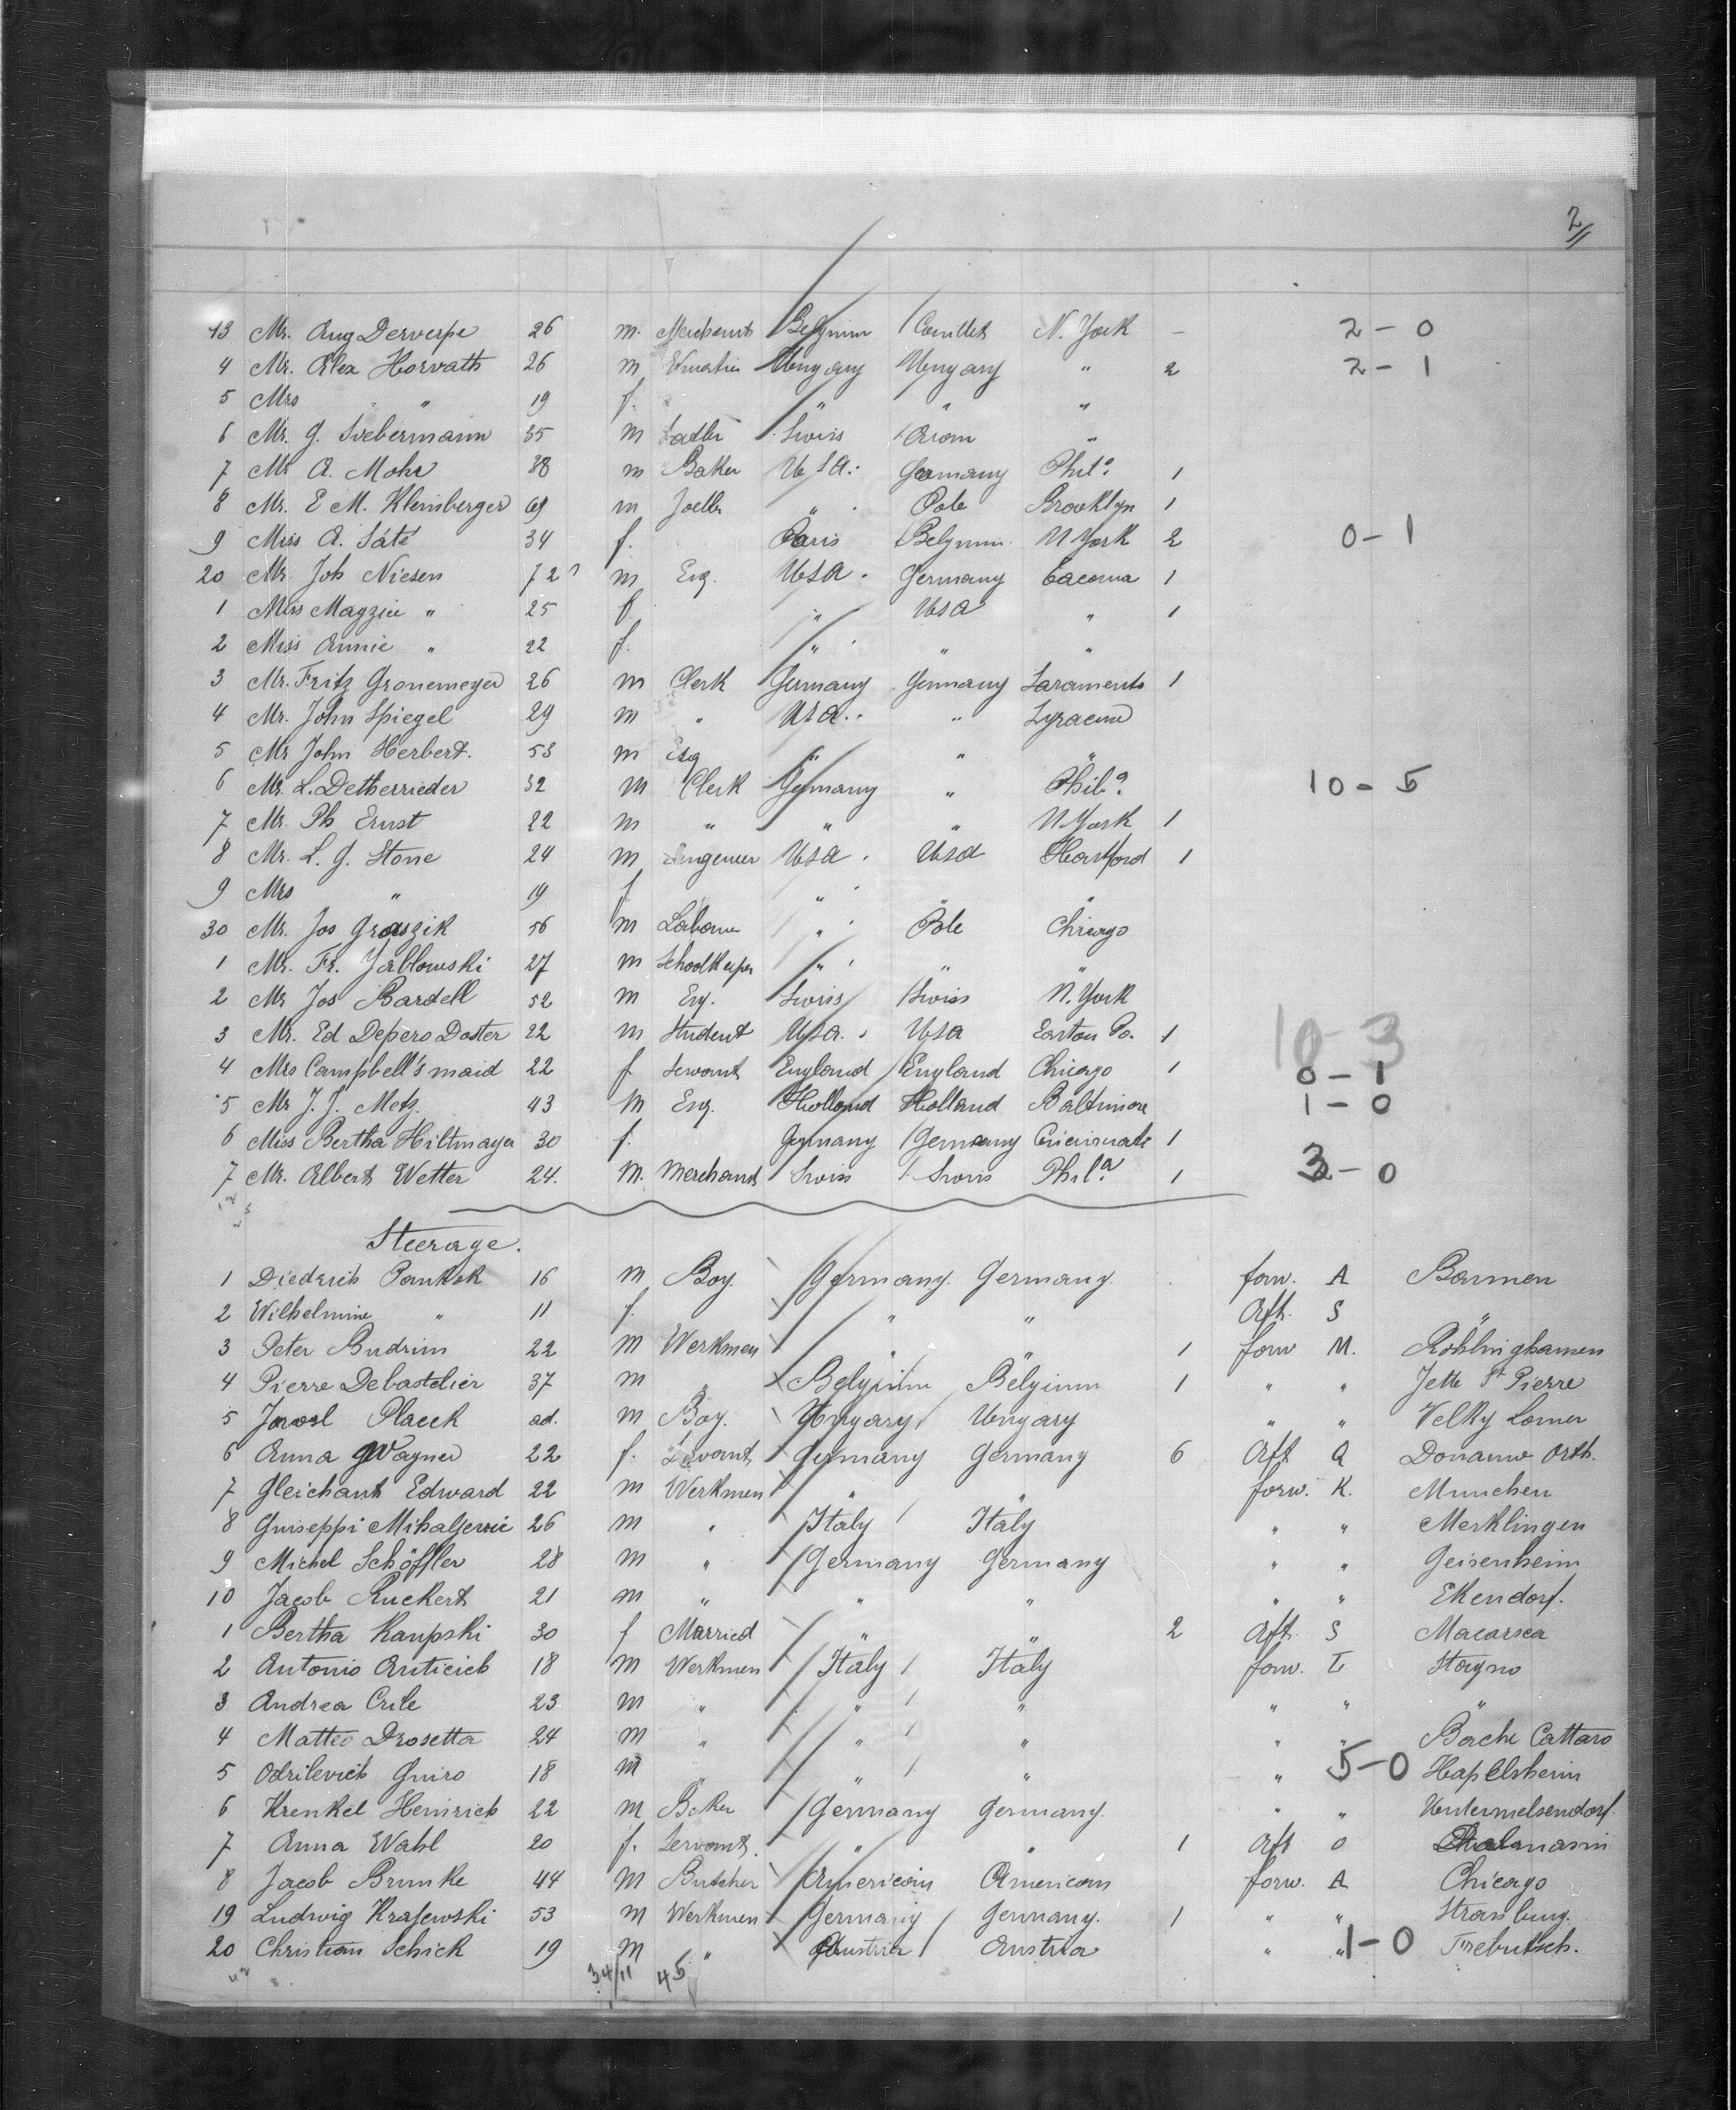 2
13 Mr. Aug Derverpe 26 m. Merchant Belgium Couillet N. York – 2 – 0
4 Mr. Alex Horvath 26 m Ungary Ungary " 2 2 – 1
5 Mrs " " 19 f. " " "
6 Mr. G. Siebermann 35 m Sadler Swiss "
7 Mr A. Mohr 38 m Baker USA. Germany Phila 1
8 Mr. E M. Kleinberger 69 m " Pole Brooklyn 1
9 Miss A. Sáté 34 f. Paris Belgium N York 2 0 – 1
20 Mr. Joh Niesen 72 m Esq. USA. Germany Tacoma 1
1 Miss Magzie " 25 f " USA " 1
2 Miss Annie " 22 f. " " "
3 Mr. Fritz Gronemeyer 26 m Clerk Germany Germany Saramento 1
4 Mr. John Spiegel 29 m " USA. " Syracuse
5 Mr John Herbert. 53 m Esq " " "
6 Mr. L. Detherrieder 32 m Clerk Germany " Phila 10 – 5
7 Mr. Ph Ernst 22 m " " " N York 1
8 Mr. L. G. Stone 24 m Engeneer USA. USA Hartford 1
9 Mrs " 19 f " " "
30 Mr. Jos Graszik 56 m Laborer " Pole Chicago
1 Mr. Fr. Jablowski 27 m Schoolkeeper " " "
2 Mr Jos Bardell 52 m Esq. Swiss Swiss N. York
3 Mr. Ed Depero Doster 22 m Student USA. USA Easton Pa. 1 10 – 3
4 Mrs Campbell's maid 22 f Servant England England Chicago 1 0 – 1
5 Mr J. J. Metz. 43 m Esq. Holland Holland Baltimore 1 – 0
6 Miss Bertha Hiltmayer 30 f. Germany Germany Cincinnati 1
7 Mr. Albert Wetter 24. M. Merchant Swiss Swiss Phila 1 3 – 0
Steerage.
1 Diedrich Pankok 16 m Boy. Germany. Germany. forw. A Barmen
2 Wilhelmine " 11 f. " " Aft. S "
3 Peter Budrim 22 m Werkmen " " 1 forw M. Röhlinghausen
4 Pierre Debastelier 37 m " Belgium Belgium 1 " " Jette St Pierre
5 Placek ad. m Boy. Ungary Ungary " " Velky Lomer
6 Anna Wagner 22 f. Servant Germany Germany 6 Aft Q Donauw Orth.
7 Gleichant Edward 22 m Werkmen " " forw. K. Munchen
8 Guiseppi Mihaljevic 26 m " Italy Italy " " Merklingen
9 Michel Schöffler 28 m " Germany Germany " " Geisenheim
10 Jacob Ruckert 21 m " " " " " Ekendorf.
1 Bertha Kaupski 30 f Married " " 2 Aft. S Macarsca
2 Antonio Anticich 18 m Werkmen Italy Italy forw. L Stagno
3 Andrea Crile 23 m " " " " " "
4 Matteo Drosetta 24 m " " " " " Boche Cattaro
5 Odrilevich Guiro 18 m " " " " 5 – 0 Hapelsheim
6 Krenkel Heinrich 22 m Baker Germany Germany. " " Untermelsendorf.
7 Anna Wahl 20 f. Servant. " " 1 Aft O
8 Jacob Brunke 44 m Butcher American American forw. A Chicago
19 Ludwig Krajewski 53 m Werkmen Germany Germany. 1 " " Strassburg.
20 Christian Schick 19 m " Austria Austria " " 1 – 0 Trebutsch.
34/11 45